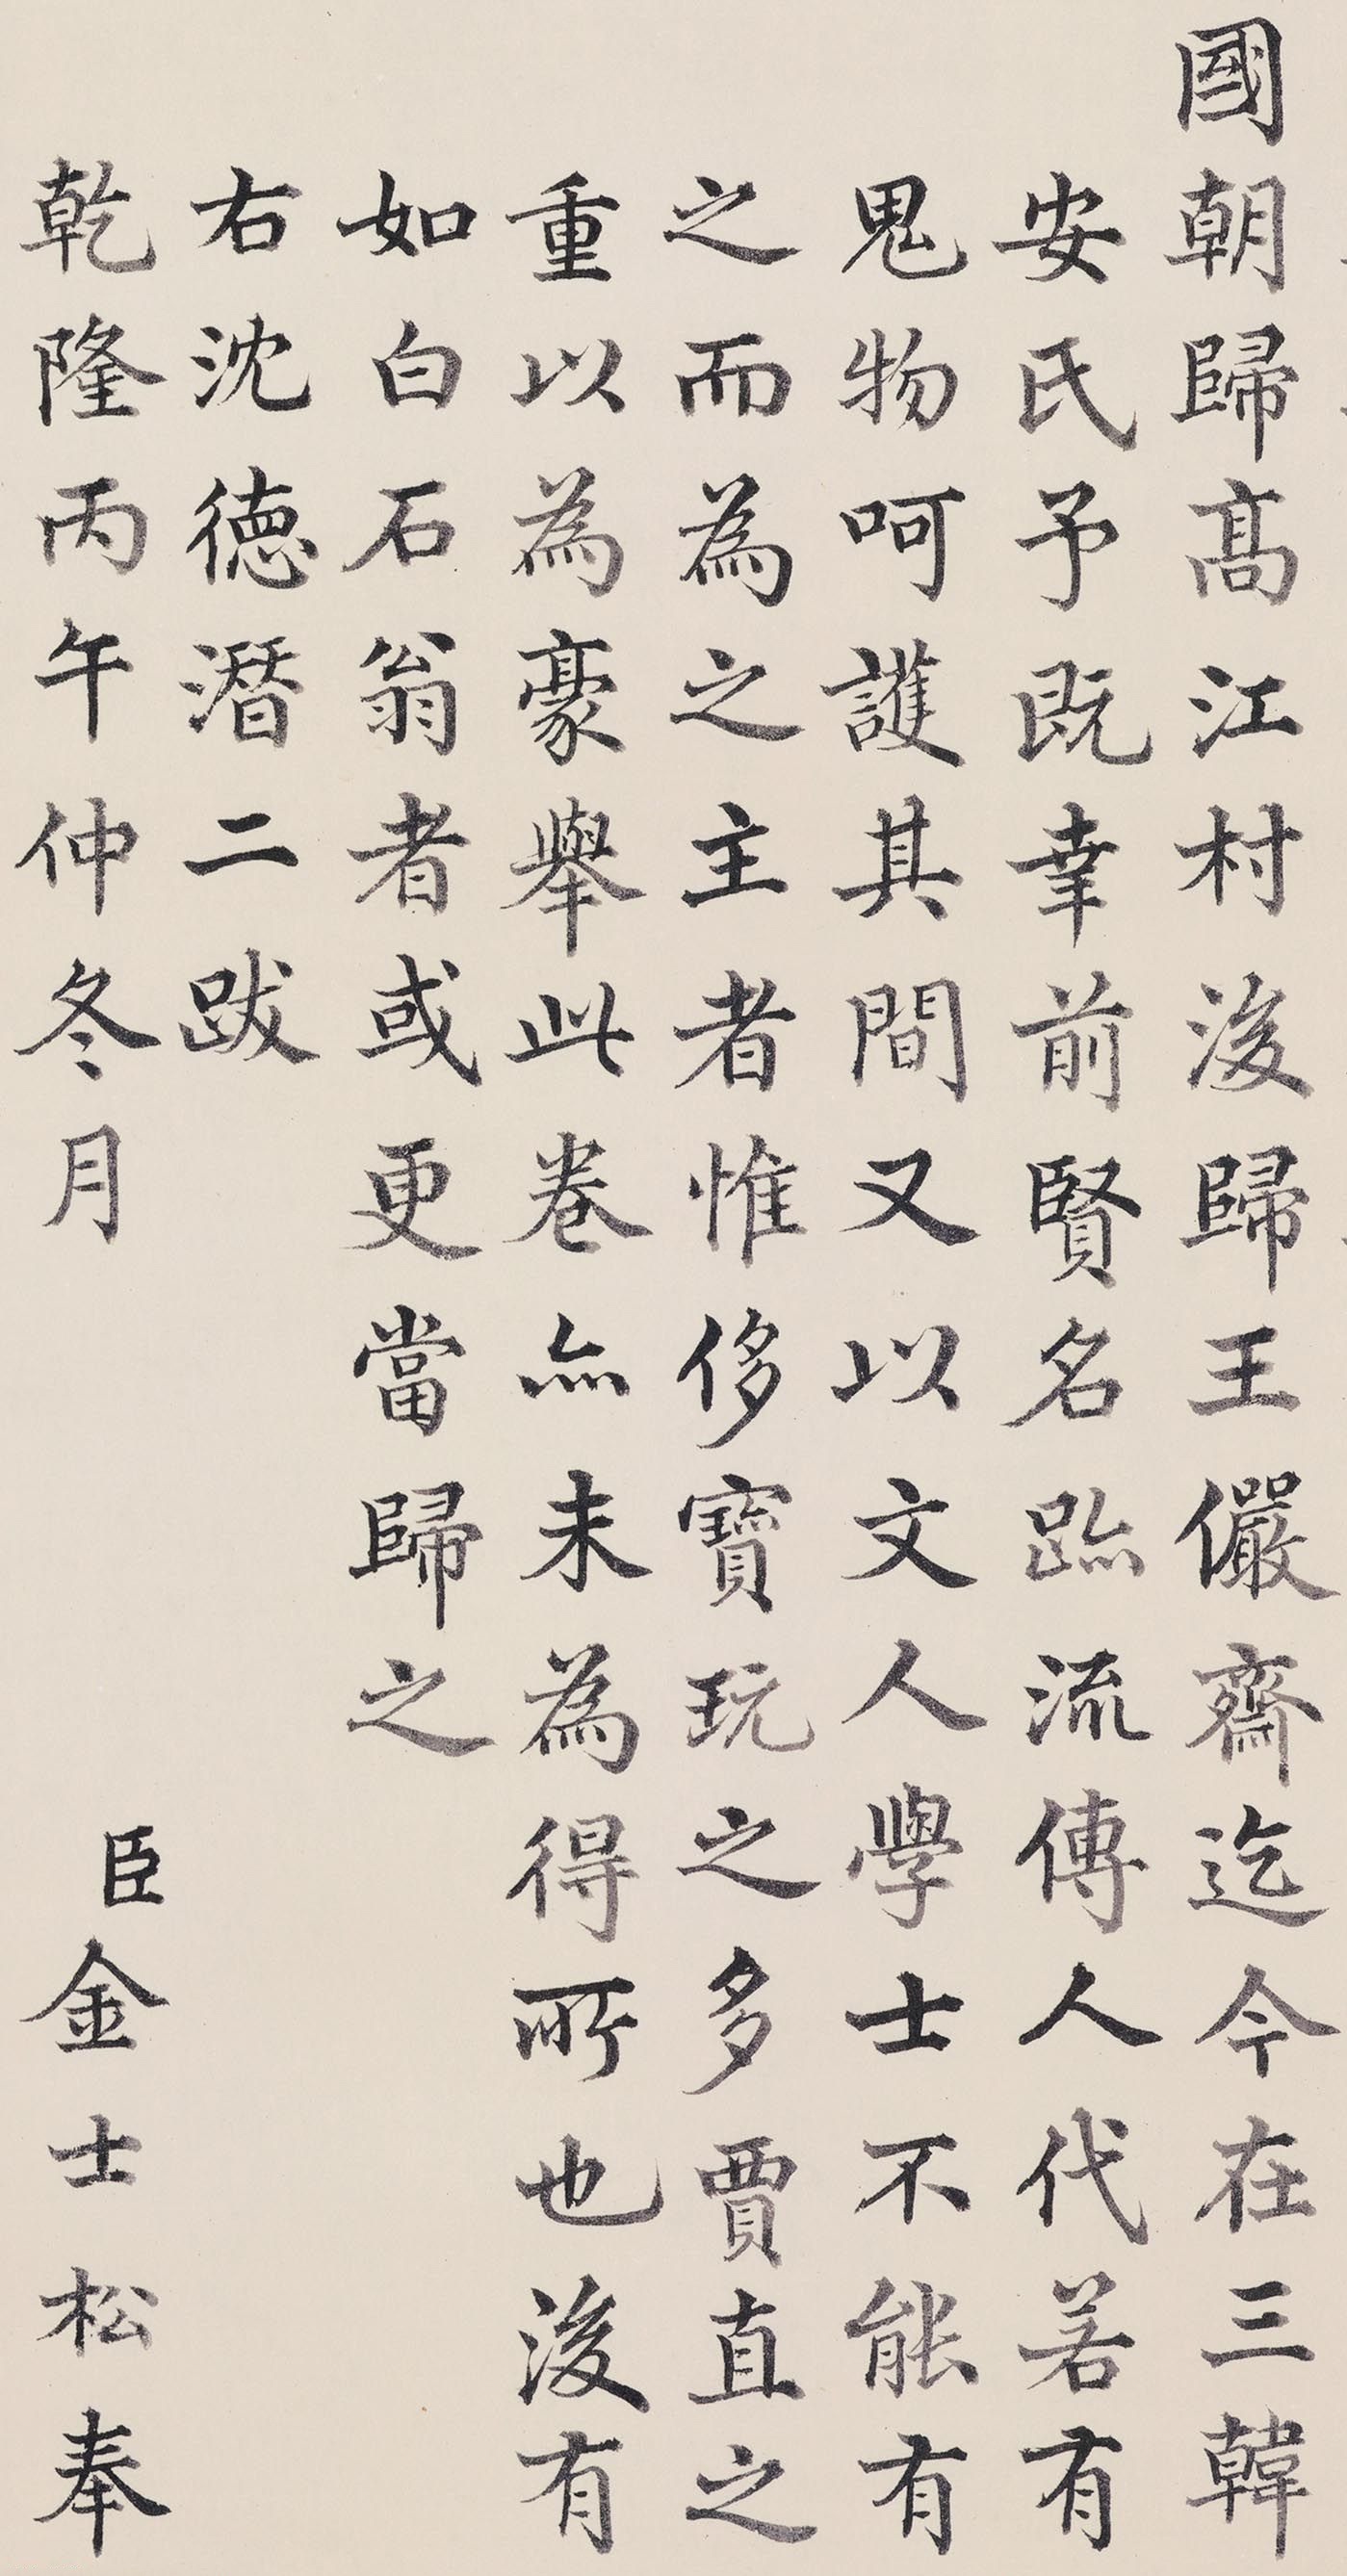 國朝歸髙江村後歸王儼齋迄今在三韓
安氏予既幸前賢名跡流傳人代若有
鬼物呵護其間又以文人學士不能有
之而為之主者惟侈寶玩之多賈直之
重以為豪舉此卷亦未為得所也後有
如白石翁者或更當歸之
右沈德潛二跋
乾隆丙午仲冬月
臣金士松奉